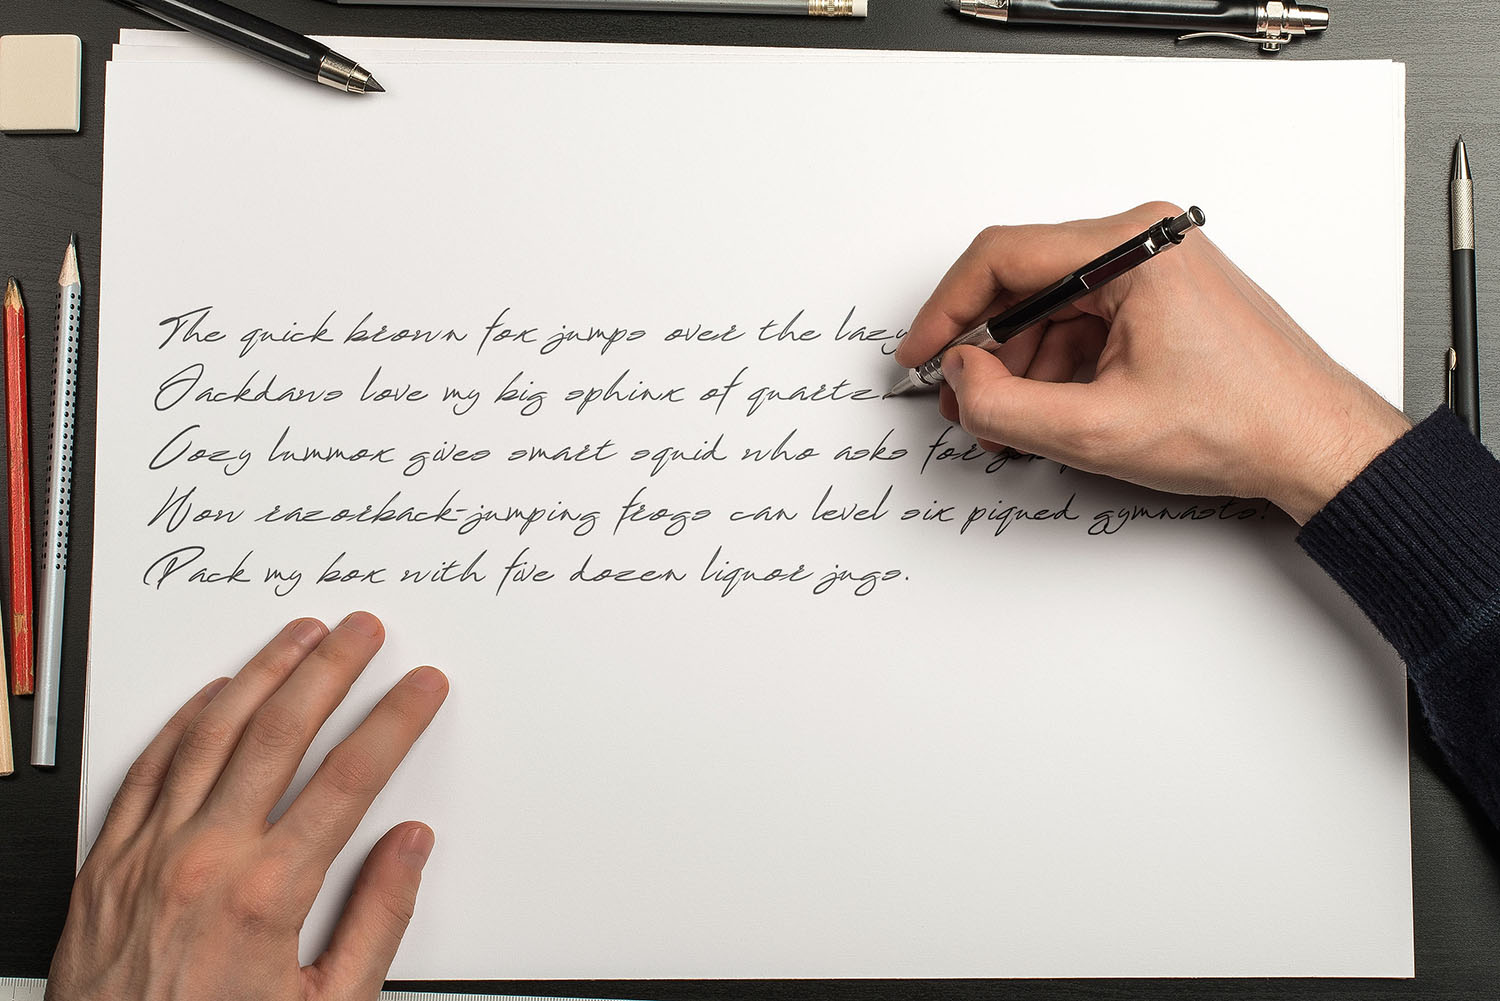 The quick brown fox jumps over the lazy
Jackdaws love my big sphinx of quartz.
Cozy lummox gives smart squid who asks for
How razorback-jumping frogs can level six piqued gymnasts!
Pack my box with five dozen liquor jugs.